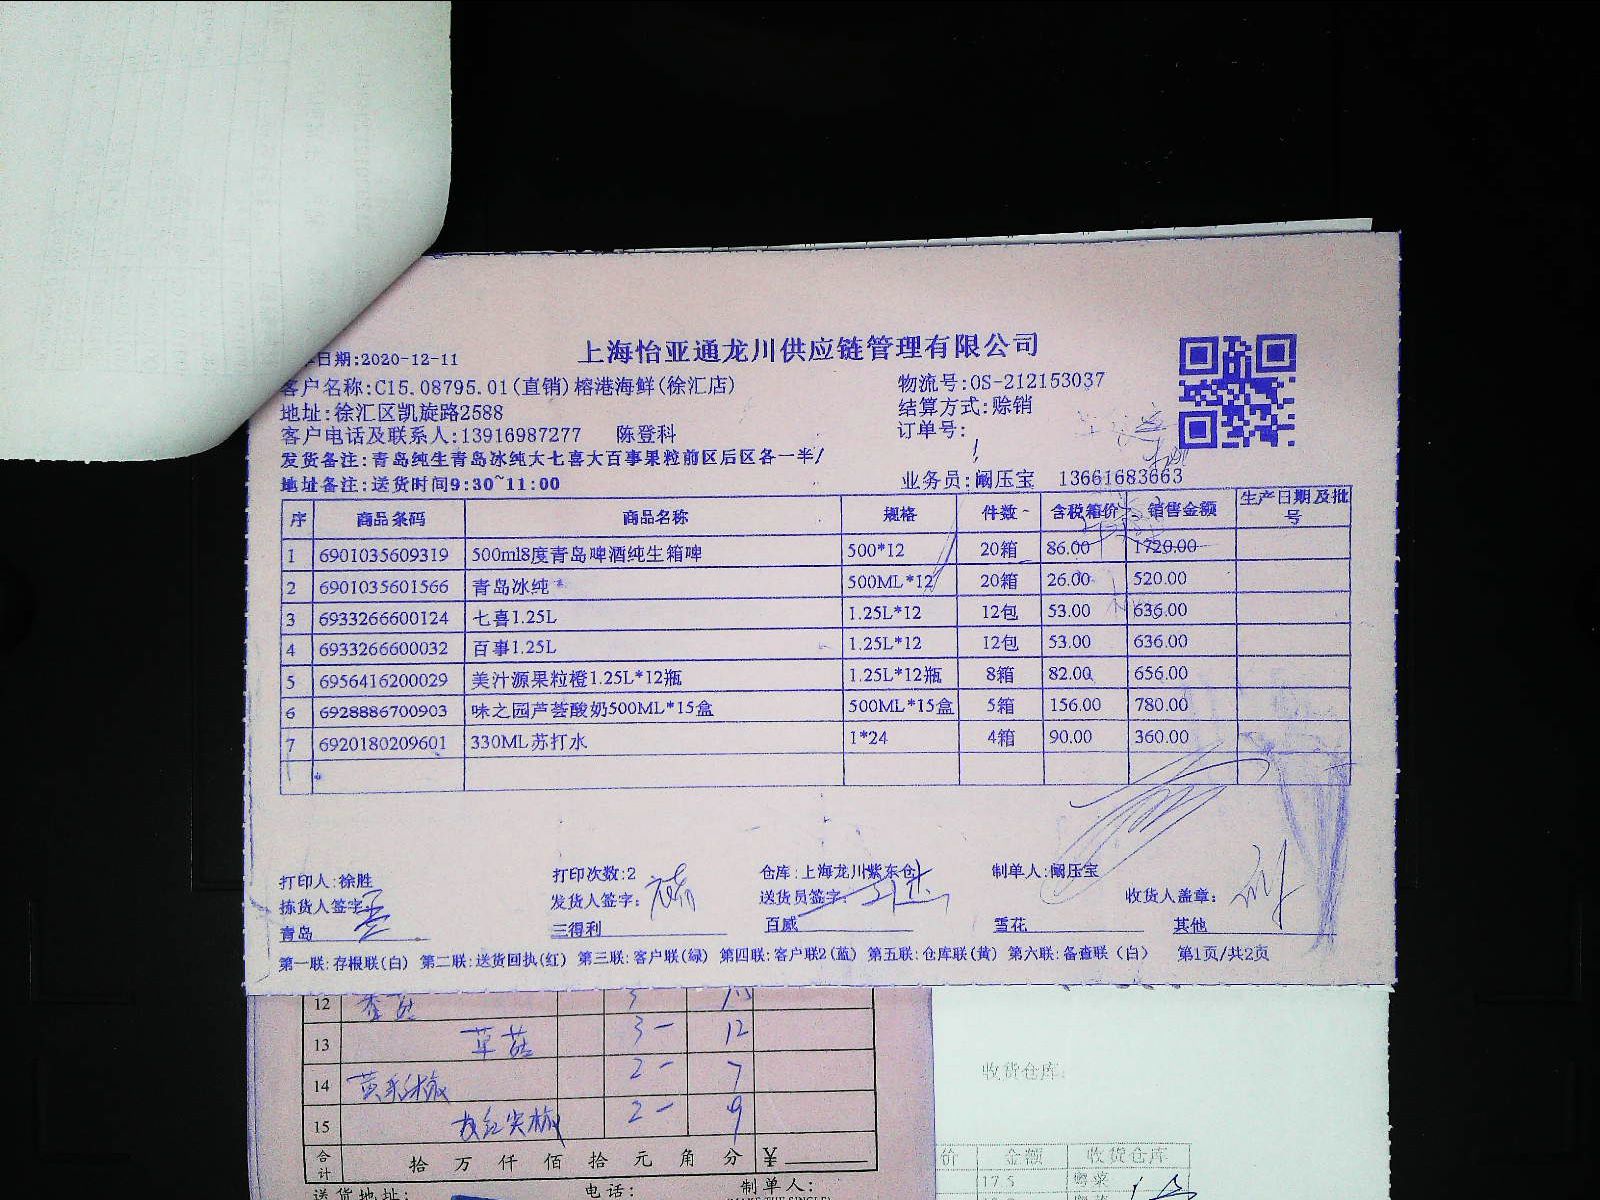 日期:2020-12-11
上海怡亚通龙川供应链管理有限公司
客户名称:C15.08795.01(直销)榕港海鲜(徐汇店)
物流号:OS-212153037
地址:徐汇区凯旋路2588
结算方式:赊销
客户电话及联系人:13916987277 陈登科
订单号:
发货备注:青岛纯生青岛冰纯大七喜大百事果粒前区后区各一半/
地址备注:送货时间9:30~11:00
业务员:阚压宝 13661683663
序 商品条码 商品名称 规格 件数 含税箱价 销售金额 生产日期及批号
1 6901035609319 500ml8度青岛啤酒纯生箱啤 500*12 20箱 86.00 1720.00
2 6901035601566 青岛冰纯 500ML*12 20箱 26.00 520.00
3 6933266600124 七喜1.25L 1.25L*12 12包 53.00 636.00
4 6933266600032 百事1.25L 1.25L*12 12包 53.00 636.00
5 6956416200029 美汁源果粒橙1.25L*12瓶 1.25L*12瓶 8箱 82.00 656.00
6 6928886700903 味之园芦荟酸奶500ML*15盒 500ML*15盒 5箱 156.00 780.00
7 6920180209601 330ML苏打水 1*24 4箱 90.00 360.00
打印人:徐胜 打印次数:2 仓库:上海龙川紫东仓 制单人:阚压宝
拣货人签字: 发货人签字: 送货员签字: 收货人盖章:
青岛 三得利 百威 雪花 其他
第一联:存根联(白) 第二联:送货回执(红) 第三联:客户联(绿) 第四联:客户联2(蓝) 第五联:仓库联(黄) 第六联:备查联(白) 第1页/共2页
12 香菇
13 草菇 3- 12
14 黄彩椒 2- 7
15 尖椒 2- 9
合计 拾 万 仟 佰 拾 元 角 分 ¥
送货地址: 电话: 制单人:
收货仓库:
价 金额 收货仓库
17.5 粤菜